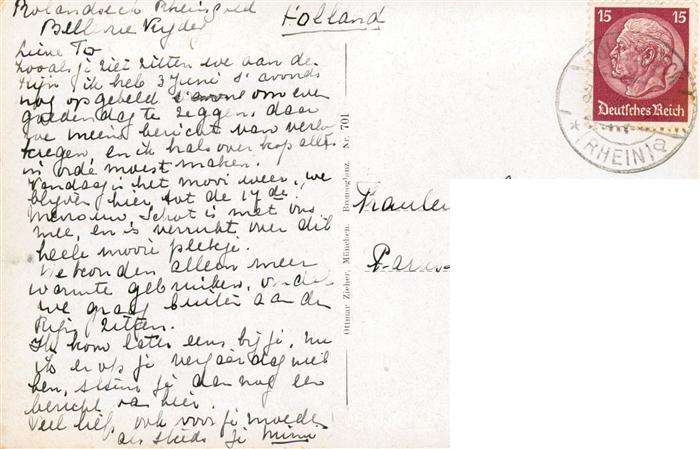 Rolandseck Rheingold
Bellevue
Holland
Lieve To
Zooals je ziet zitten we aan de
Rijn, ik heb 3 Juni 's avonds
nog opgebeld om even
goeden dag te zeggen, daar
we meende bericht van verlo
kregen, en ik hals over kop alles
in orde moest maken.
Vandaag is het mooi weer, we
blijven hier tot de 17de.
Mevrouw Schot is met ons
mee, en is verrukt over dit
heele mooie plekje.
We konden alleen meer
warmte gebruiken, omdat
we graag buiten aan de
Rijn zitten.
Ik kom later eens bij je, nu
ik er op je verjaardag niet
ben, stuur je dan nog een
bericht van hier.
Veel liefs ook voor je moeder
als steeds je Mimi
Ottmar Zieher, München. Bromoglanz. Nr. 701
15 15
Deutsches Reich
* (RHEIN) a